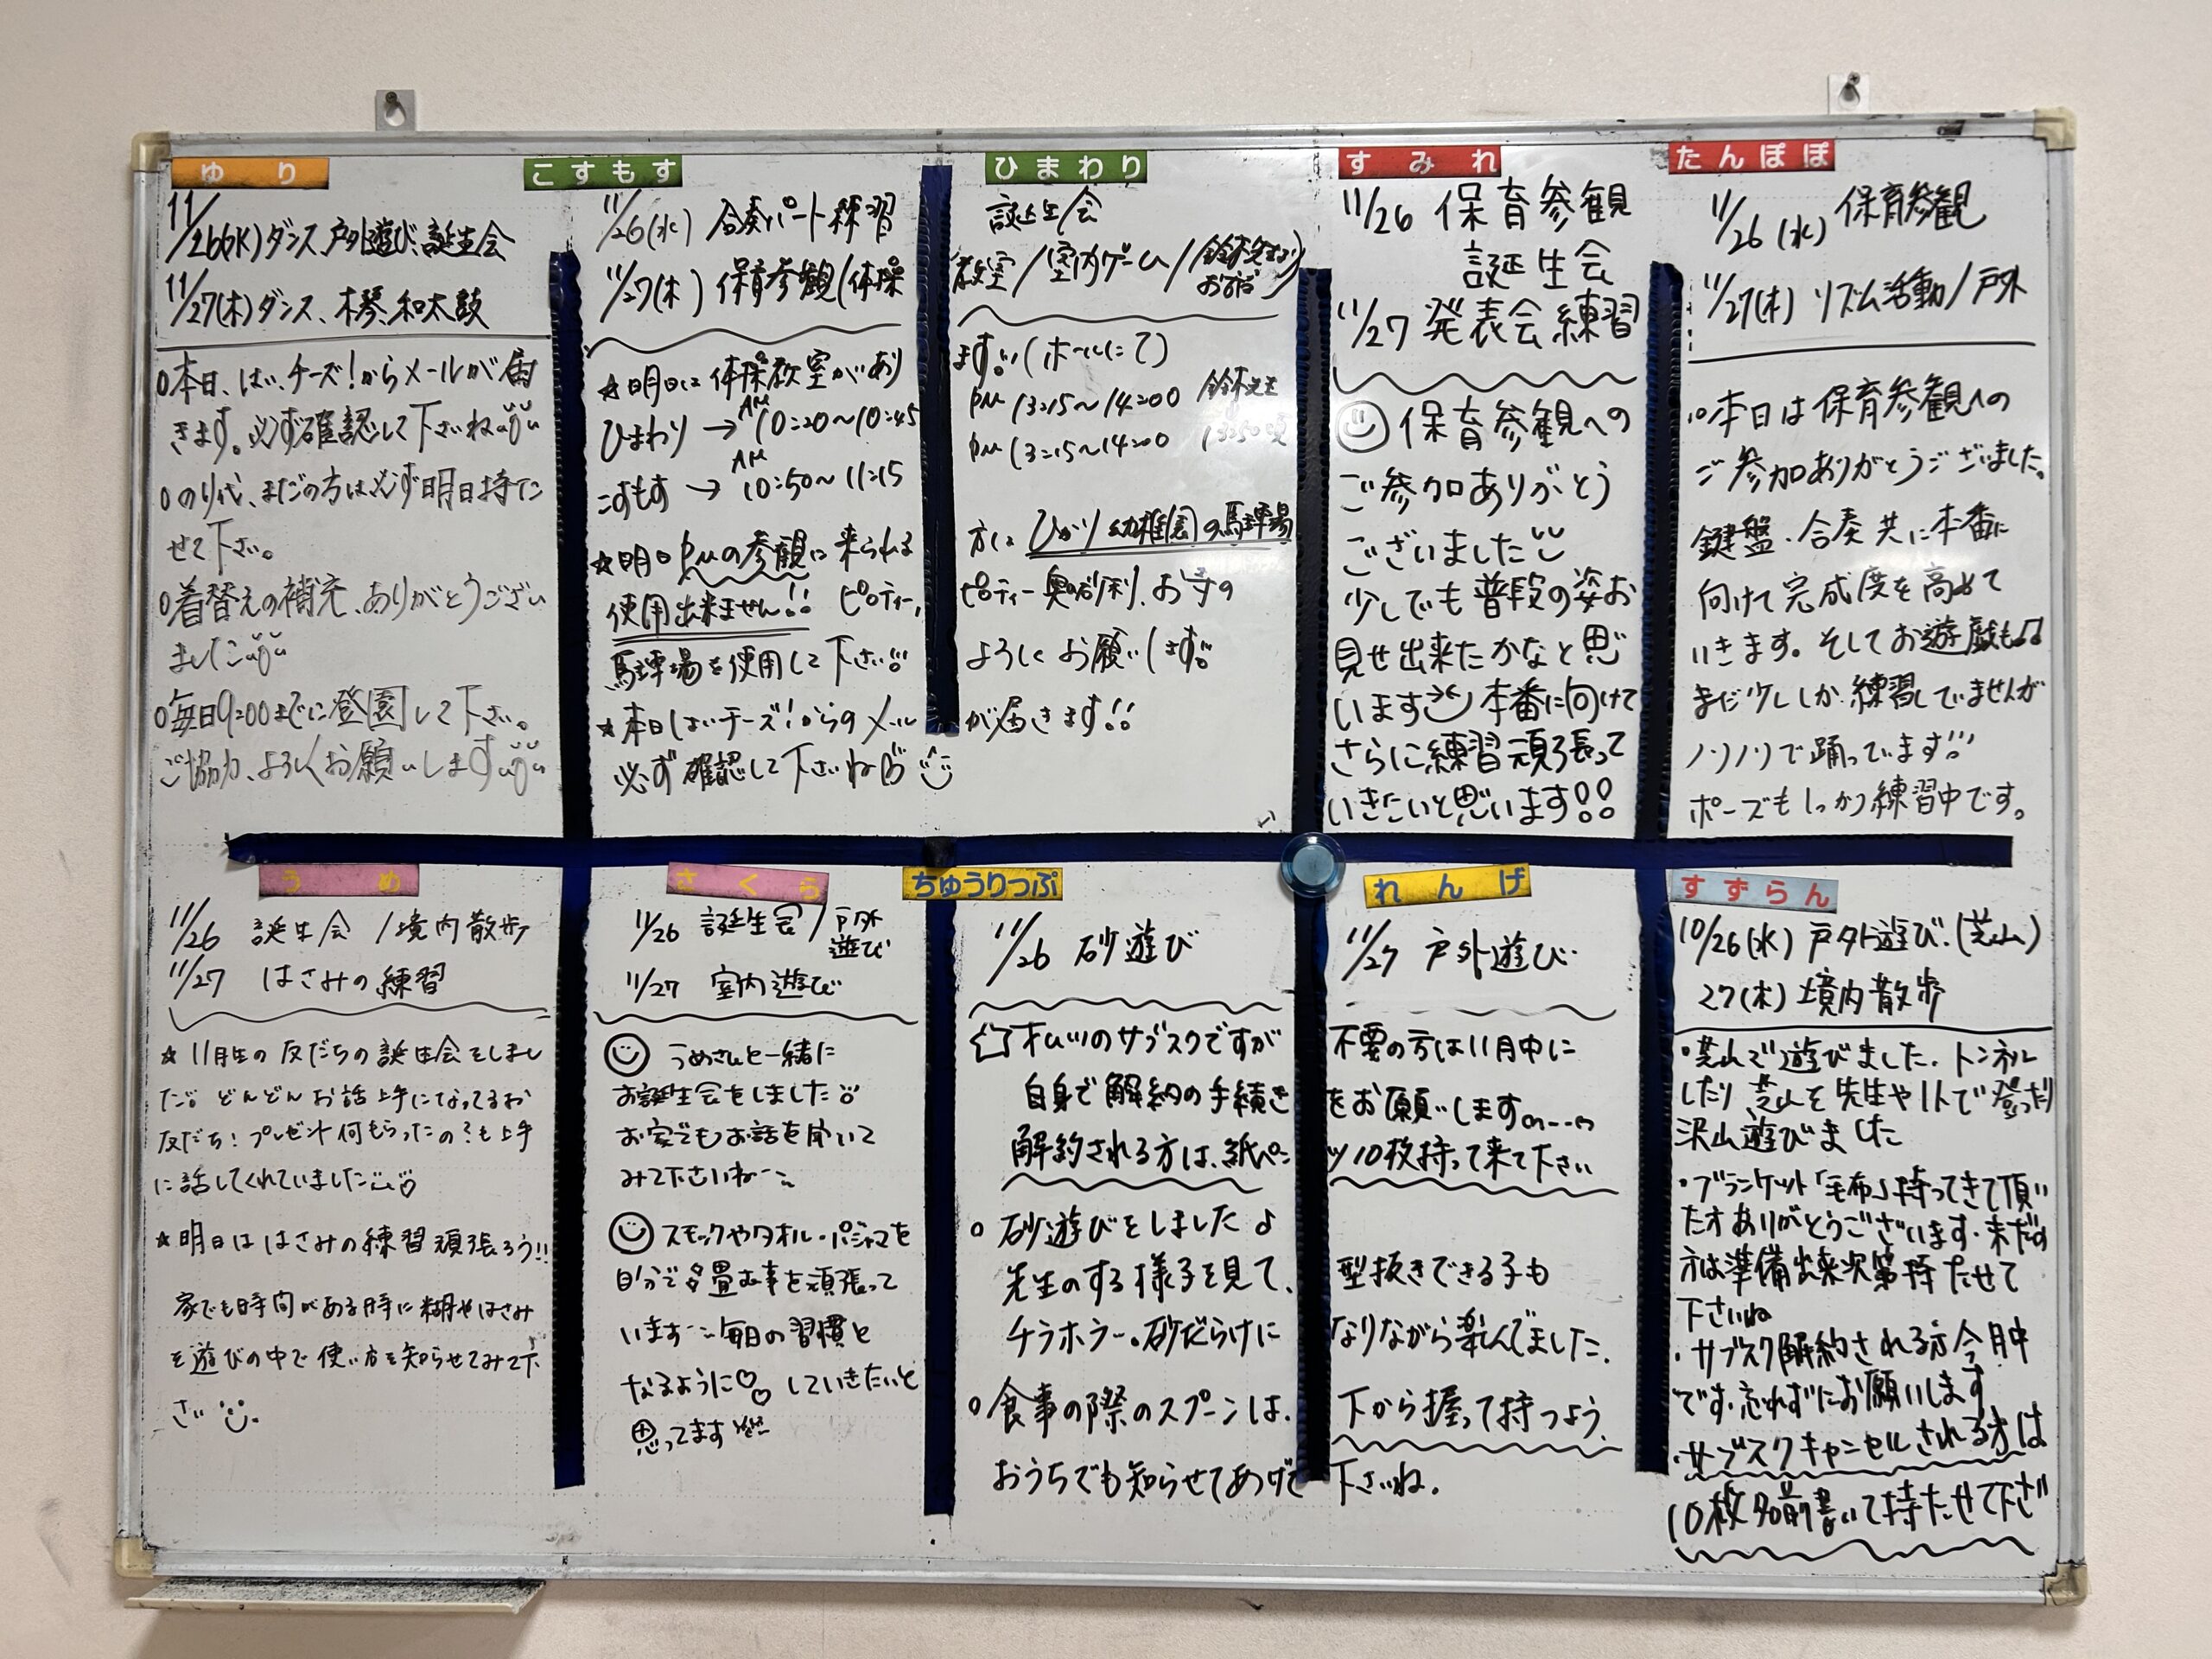 ゆり
11/26(水)ダンス、戸外遊び、誕生会
11/27(木)ダンス、木琴、和太鼓
○本日、はい、チーズ!からメールが届
きます。必ず確認して下さいね
○のり代、まだの方は必ず明日持た
せて下さい。
○着替えの補充、ありがとうござい
ました
○毎日9:00までに登園して下さい。
ご協力、よろしくお願いします
こすもす
ひまわり
11/26(水) 合奏パート練習 誕生会
11/27(木) 保育参観(体操教室/室内ゲーム/鈴木先生より
お話)
☆明日に体操教室があります!!(ホールにて)
ひまわり→AM 10:20~10:45 PM 13:15~14:00 鈴木先生
こすもす→AM 10:50~11:15 PM 13:15~14:00 13:50頃
★明日PMの参観に来られる方にひかり幼稚園の駐車場
使用出来ません!! ピロティー、ピロティー奥の砂利、お寺の
駐車場を使用して下さい よろしくお願いします
★本日はいチーズ!からのメールが届きます!!
必ず確認して下さいね
すみれ
11/26 保育参観
誕生会
11/27 発表会練習
保育参観への
ご参加ありがとう
ございました
少しでも普段の姿お
見せ出来たかなと思
います 本番に向けて
さらに練習頑張って
いきたいと思います!!
たんぽぽ
11/26(水) 保育参観
11/27(木) リズム活動/戸外
本日は保育参観への
ご参加ありがとうございました。
鍵盤・合奏共に本番に
向けて完成度を高めて
いきます。そしてお遊戯も♫
まだ少ししか練習していませんが
ノリノリで踊っています!!
ポーズもしっかり練習中です。
うめ
11/26 誕生会/境内散歩
11/27 はさみの練習
☆11月生の友だちの誕生会をしまし
た。どんどんお話上手になってるお
友だち!プレゼント何もらったの?も上手
に話してくれていました
★明日ははさみの練習頑張ろう!!
家でも時間がある時に糊やはさみ
を遊びの中で使い方を知らせてみて下
さい
さくら
11/26 誕生会/戸外
遊び
11/27 室内遊び
うめさんと一緒に
お誕生会をしました
お家でもお話を聞いて
みて下さいね
スモックやタオル・パジャマを
自分で畳む事を頑張って
います 毎日の習慣と
なるように♡していきたいと
思ってます
ちゅうりっぷ
れんげ
11/26 砂遊び 11/27 戸外遊び
オムツのサブスクですが不要の方は11月中に
自身で解約の手続きをお願いします
解約される方は、紙パンツ10枚持って来て下さい
○砂遊びをしました♪
先生のする様子を見て、型抜きできる子も
チラホラ。砂だらけになりながら楽しんでました。
○食事の際のスプーンは、下から握って持つよう、
おうちでも知らせてあげて下さいね。
すずらん
10/26(水) 戸外遊び(芝山)
27(木) 境内散歩
・芝山で遊びました。トンネル
したり芝山を先生や1人で登ったり
沢山遊びました
・ブランケット「毛布」持ってきて頂い
た方ありがとうございます。未だの
方は準備出来次第持たせて
下さいね
・サブスク解約される方今月中
です。忘れずにお願いします
・サブスクキャンセルされる方は
10枚名前書いて持たせて下さい